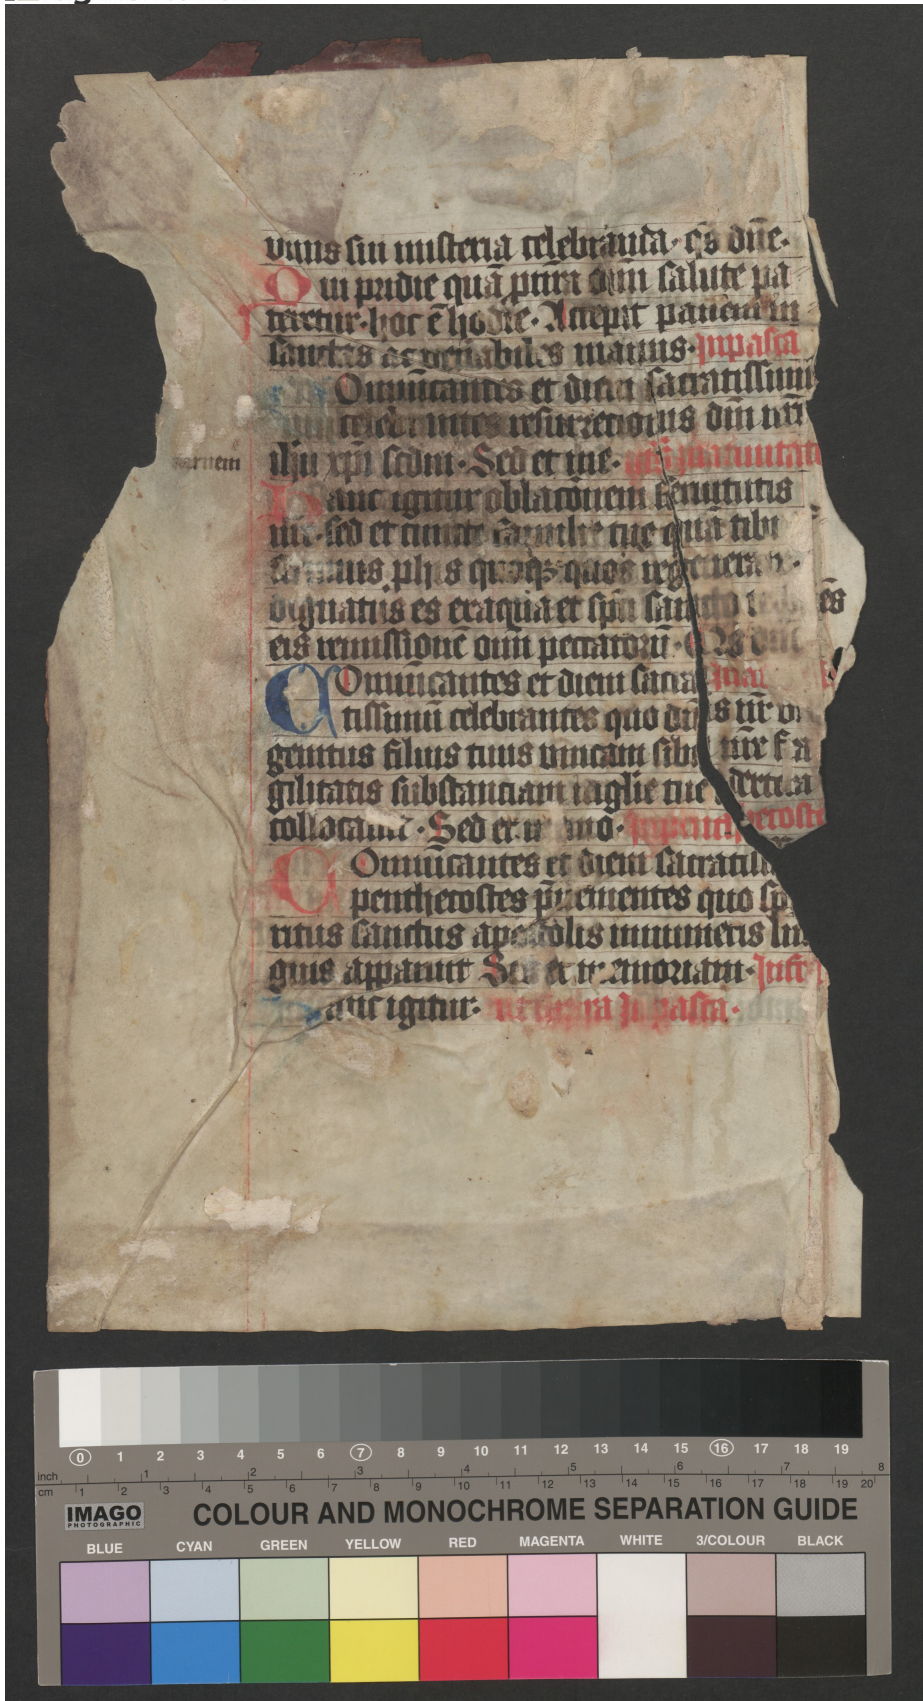 sui misteria celebranda· q̄s dn̄e·
Qui pridie quā p nr̄a om̄i salute pa
teretur· hoc ē hodie· Accepit panem in
sanctas ac uen̄abiles manus· In pasca
Omuīcantes et diem sacratissimū
celebrantes resurrectionis dn̄i nr̄i
ihu xp̄i scdm· Sed et me·
carnem
Hanc igitur oblacōnem seruitutis
sed et cuncte familie tue quā tibi
plis quoqȝ quos regenerare·
dignatus es ex aqua et spū sancto
eis remissionē om̄i peccatorū· Qs dn̄e
COmuīcantes et diem sacra
tissimū celebrantes quo dn̄s nr̄
genitus filius tuus vnicam sibi nr̄e fra
gilitatis substanciam in glīe tue dextera
collocauit· Sed et memo·
COmuīcantes et diem sacratiss
penthecostes p̄uenientes quo spi
ritus sanctus apostolis innumeris lin
guis apparuit Sed et memoriam· Infr
Hanc igitur· In pasca·
0 1 2 3 4 5 6 7 8 9 10 11 12 13 14 15 16 17 18 19
inch 1 2 3 4 5 6 7 8
cm 1 2 3 4 5 6 7 8 9 10 11 12 13 14 15 16 17 18 19 20
IMAGO PHOTOGRAPHIC COLOUR AND MONOCHROME SEPARATION GUIDE
BLUE CYAN GREEN YELLOW RED MAGENTA WHITE 3/COLOUR BLACK